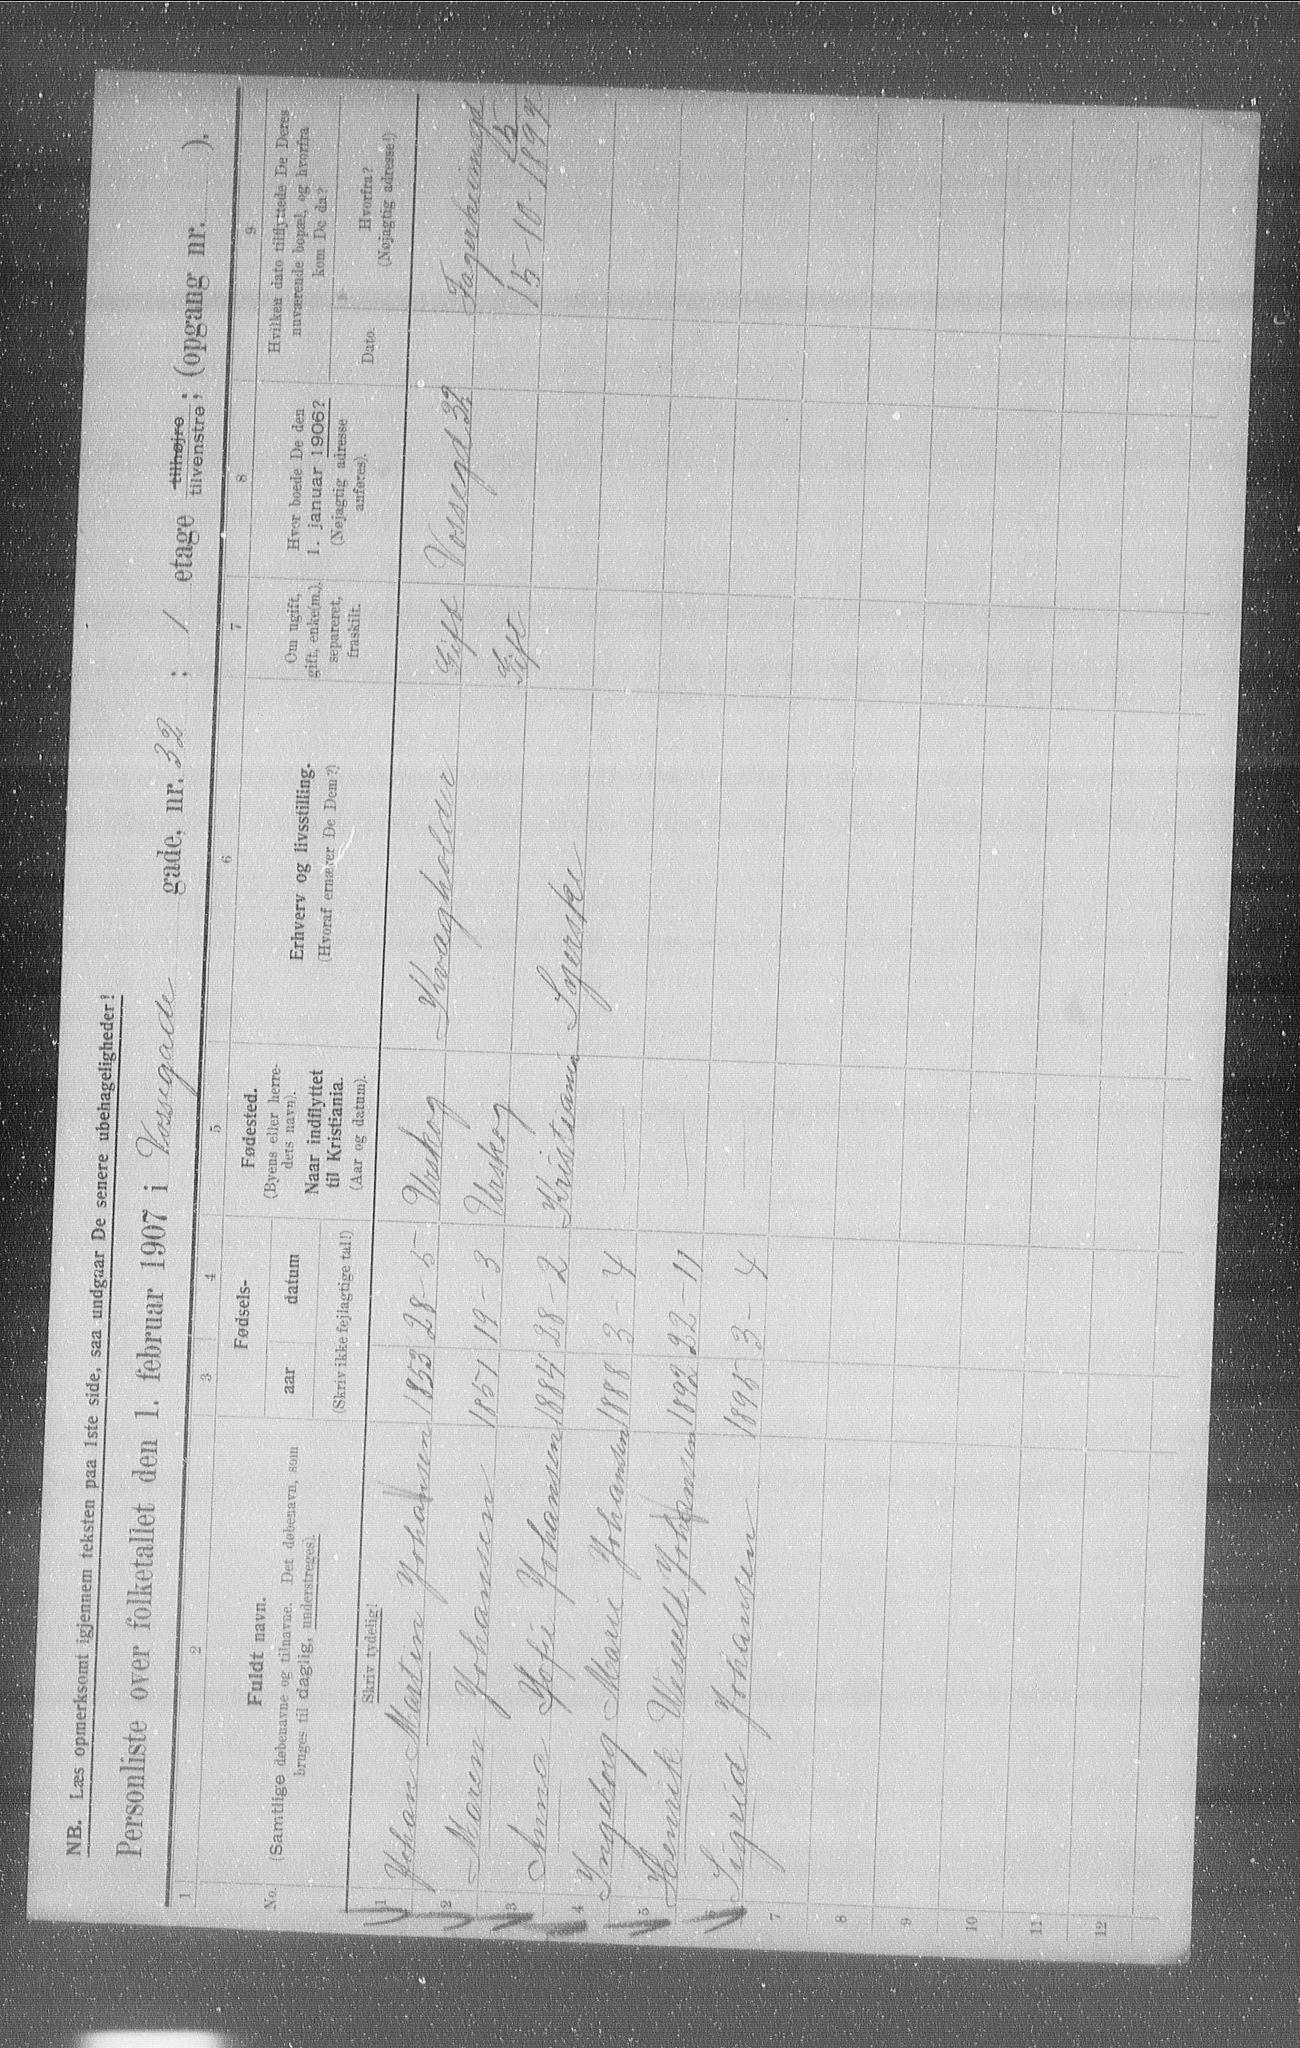 NB. Læs opmerksomt igjennem teksten paa 1ste side, saa undgaar De senere ubehageligheder!
Personliste over folketallet den 1. februar 1907 i Vossegade gade, nr. 32 ; 1 etage tilhøjre tilvenstre; (opgang nr. ).
1 2 3 4 5 6 7 8 9
No.
Fuldt navn.
(Samtlige døbenavne og tilnavne. Det døbenavn, som
bruges til daglig, understreges).
Skriv tydelig!
Fødsels-
aar datum
(Skriv ikke fejlagtige tal!)
Fødested.
(Byens eller herre-
dets navn).
Naar indflyttet
til Kristiania.
(Aar og datum).
Erhverv og livsstilling.
(Hvoraf ernærer De Dem?)
Om ugift,
gift, enke(m.),
separeret,
fraskilt.
Hvor boede De den
1. januar 1906?
(Nøjagtig adresse
anføres).
Hvilken dato tilflyttede De Deres
nuværende bopæl, og hvorfra
kom De da?
Dato.
Hvorfra?
(Nøjagtig adresse!)
1 Johan Martin Johansen 1853 28-5 Urskog Kvægholder Gift Vossegd 32 Fagerheimsgd
2 Maren Johansen 1851 19-3 Urskog Gift 15-10-1899
3 Anna Sofie Johansen 1884 28-2 Kristiania Syerske
4 Ingeborg Marie Johansen 1888 3-4
5 Henrik Wessel Johansen 1892 22-11
6 Sigrid Johansen 1895 3-4
7
8
9
10
11
12